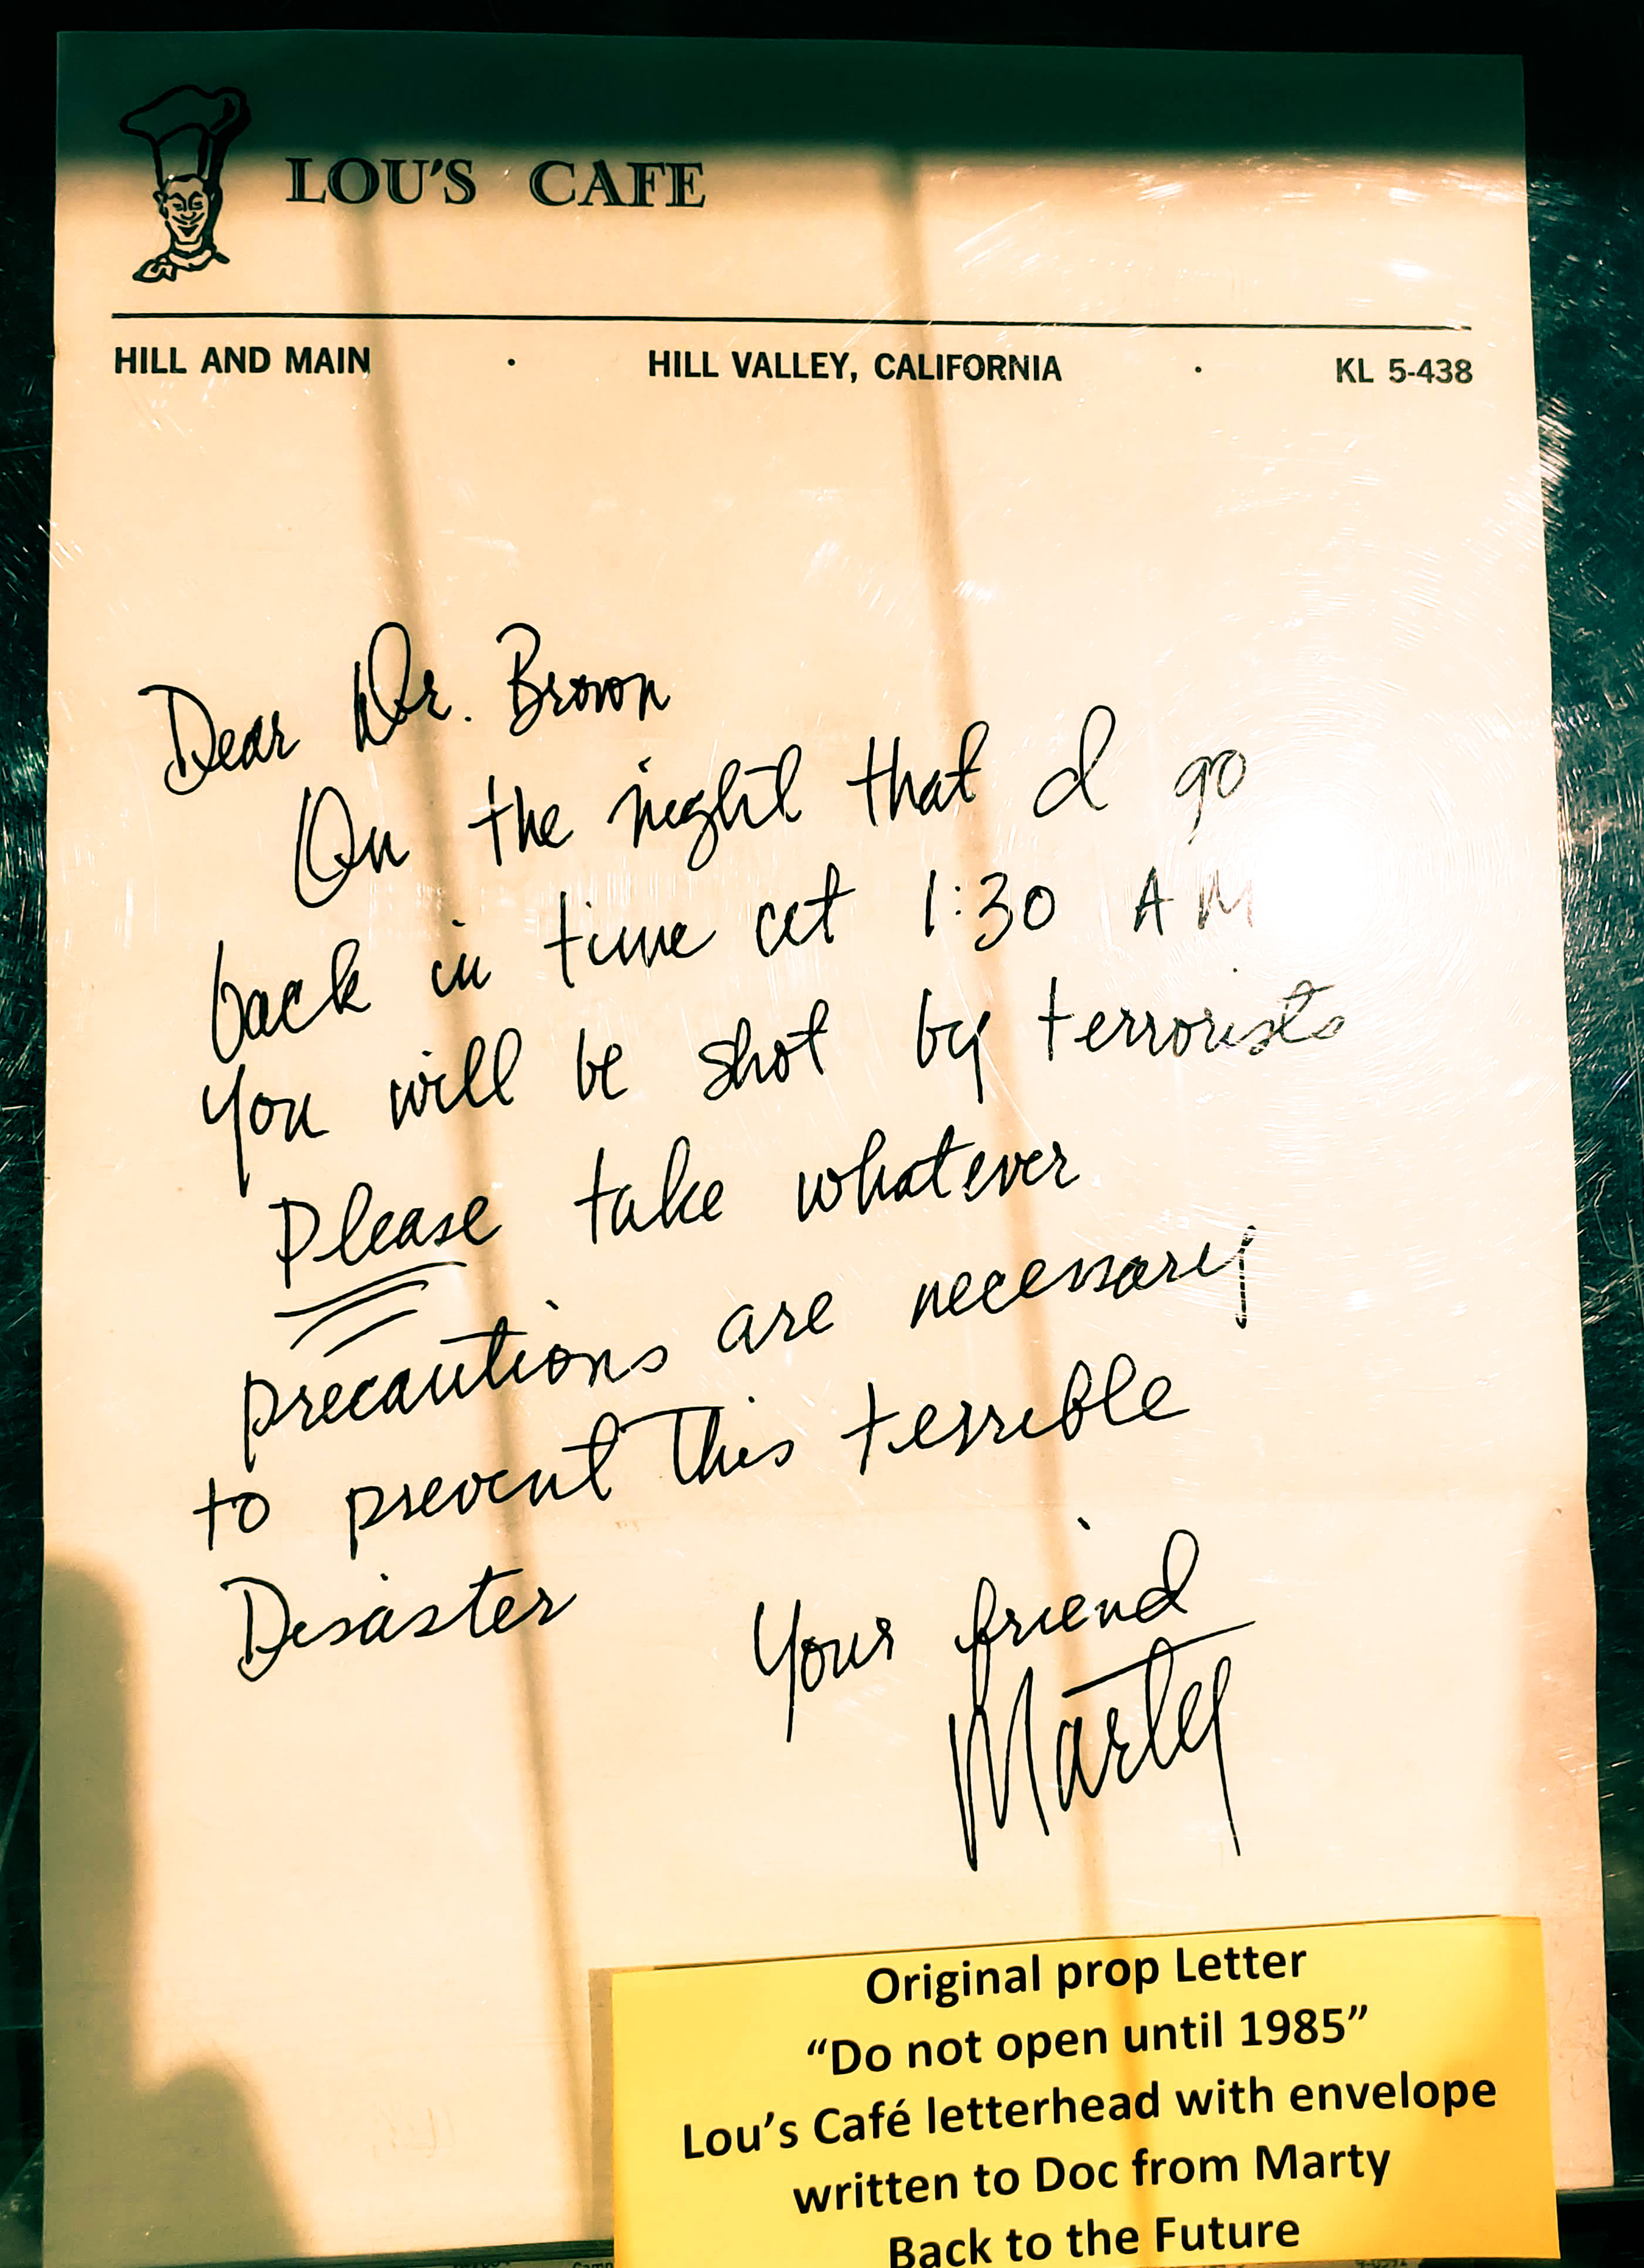 LOU'S CAFE
HILL AND MAIN · HILL VALLEY, CALIFORNIA · KL 5-438
Dear Dr. Brown
On the night that I go
back in time at 1:30 AM
you will be shot by terrorists
Please take whatever
precautions are necessary
to prevent this terrible
Disaster
Your friend
Marty
Original prop Letter
“Do not open until 1985”
Lou’s Café letterhead with envelope
written to Doc from Marty
Back to the Future